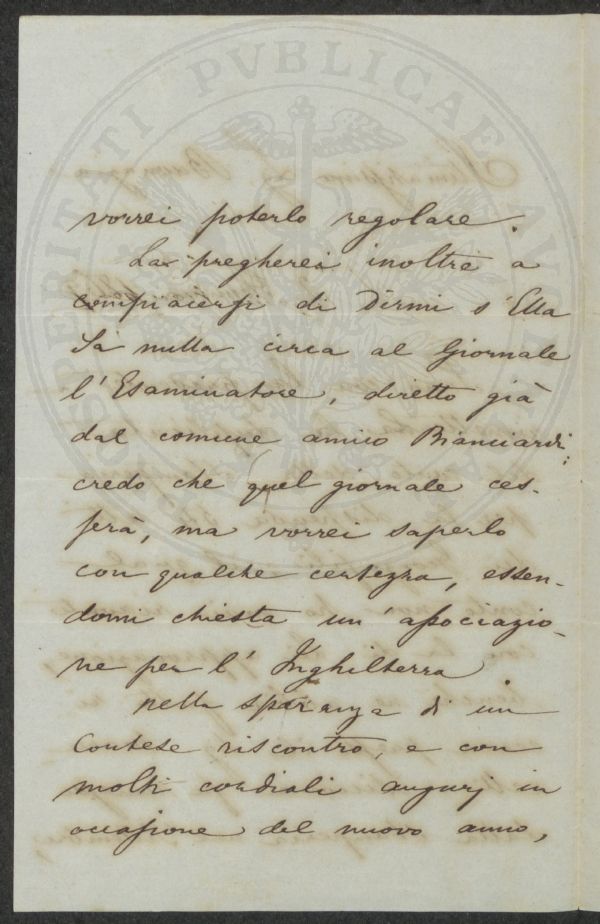 vorrei poterlo regolare.
La pregherei inoltre a
compiacersi di dirmi s'Ella
sà nulla circa al Giornale
l'Esaminatore, diretto già
dal comune amico Bianciardi;
credo che quel giornale ces-
serà, ma vorrei saperlo
con qualche certezza, essen-
domi chiesta un'associazio-
ne per l'Inghilterra.
nella speranza di un
Cortese riscontro, e con
molti cordiali augurj in
occasione del nuovo anno,